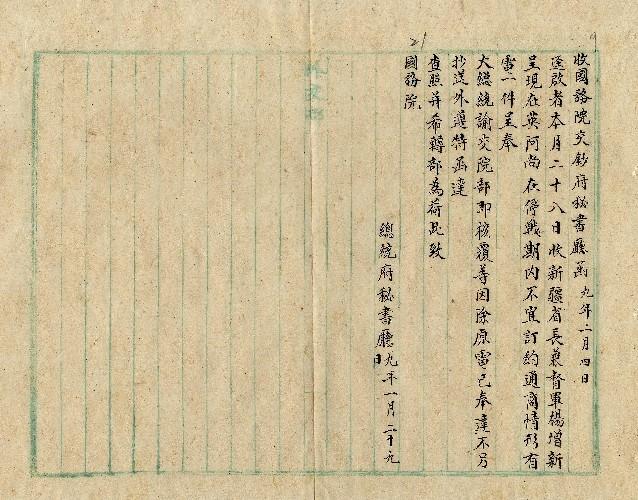 收國務院交鈔府秘書廳函 九年二月四日
逕啟者本月二十八日收新疆省長兼督軍楊增新
呈現在英阿尚在停戰期內不宜訂約通商情形有
電一件呈奉
大總統諭交院部即核覆等因除原電已奉達不另
抄送外遵特函達
查照并希轉部為荷此致
國務院
總統府秘書廳 九年一月二十九
日
21